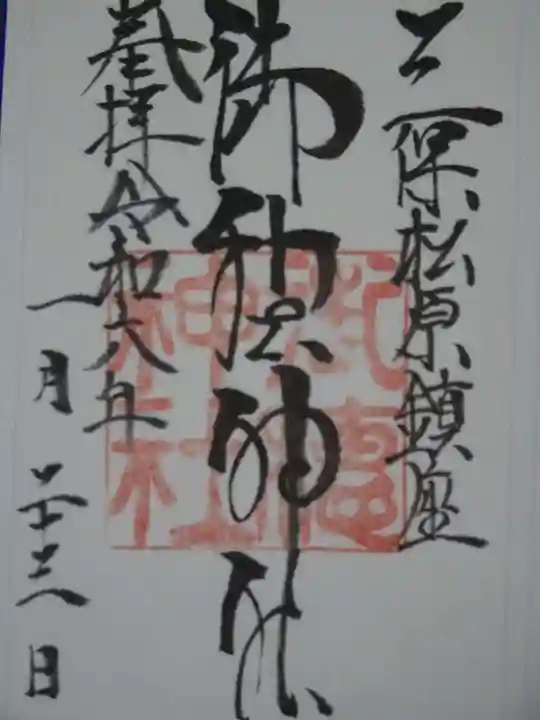 三保松原鎮座
御穂神社
奉拝令和六年
一月二十三日
神社